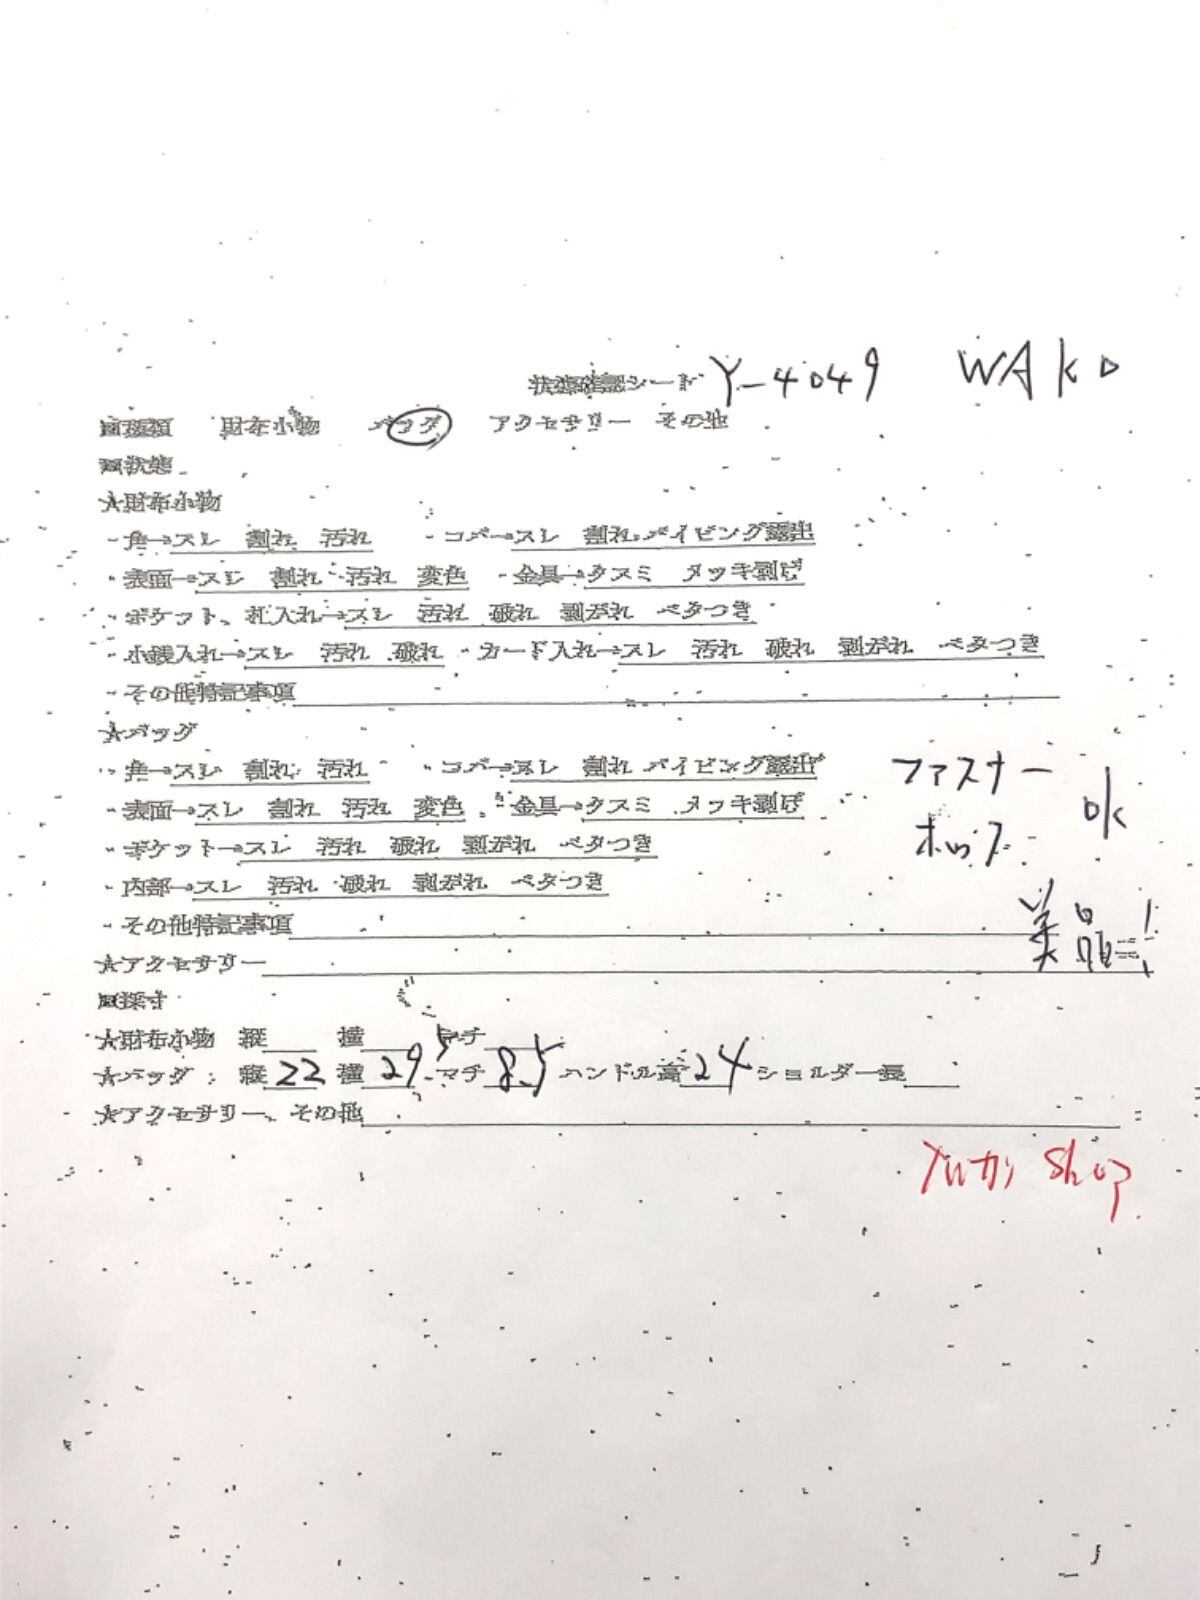 状態確認シート Y-4049 WAKO
■種類 財布小物 バッグ アクセサリー その他
■状態
★財布小物
・角→スレ 割れ 汚れ ・コバ→スレ 割れ パイピング露出
・表面→スレ 割れ 汚れ 変色 ・金具→クスミ メッキ剥げ
・ポケット、札入れ→スレ 汚れ 破れ 剥がれ ベタつき
・小銭入れ→スレ 汚れ 破れ ・カード入れ→スレ 汚れ 破れ 剥がれ ベタつき
・その他特記事項
★バッグ
・角→スレ 割れ 汚れ ・コバ→スレ 割れ パイピング露出 ファスナー
・表面→スレ 割れ 汚れ 変色 ・金具→クスミ メッキ剥げ ok
・ポケット→スレ 汚れ 破れ 剥がれ ベタつき ホック
・内部→スレ 汚れ 破れ 剥がれ ベタつき
・その他特記事項 美品!!
★アクセサリー
■採寸
★財布小物 縦 横 マチ
★バッグ: 縦 22 横 29.5 マチ 8.5 ハンドル高 24 ショルダー長
★アクセサリー、その他
Shop